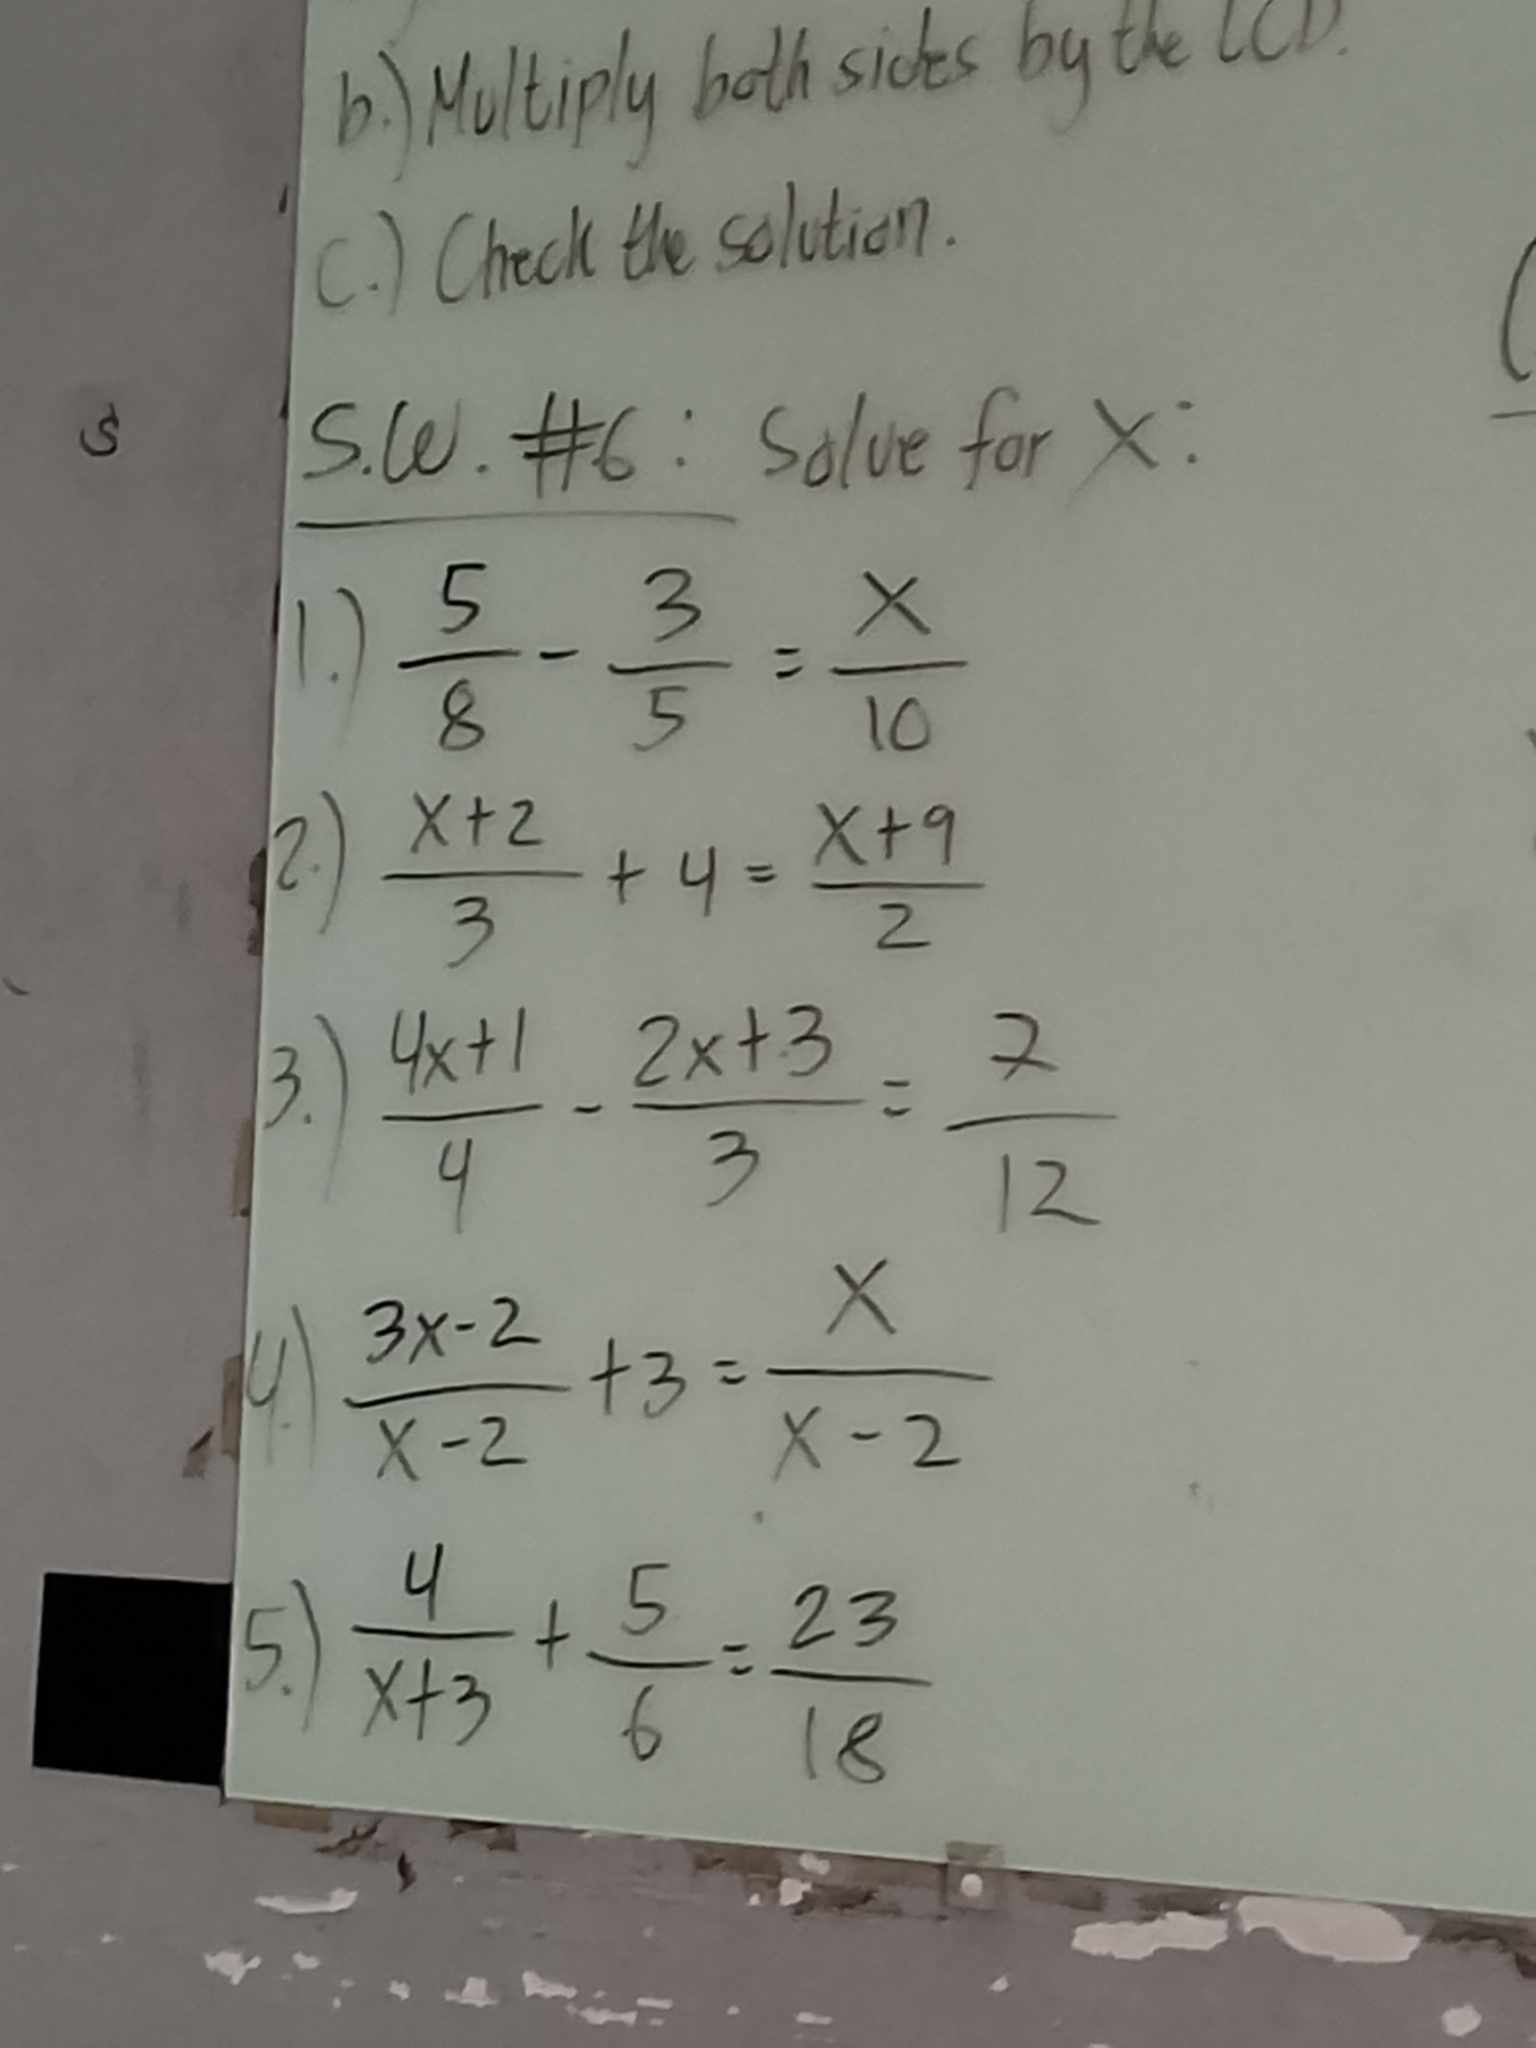 b.) Multiply both sides by the LCD.
c.) Check the solution.
s
S.W. #6: Solve for X:
1.) 5/8 - 3/5 = X/10
2.) X+2/3 + 4 = X+9/2
3.) 4x+1/4 - 2x+3/3 = 7/12
4.) 3x-2/x-2 + 3 = X/X-2
5.) 4/x+3 + 5/6 = 23/18